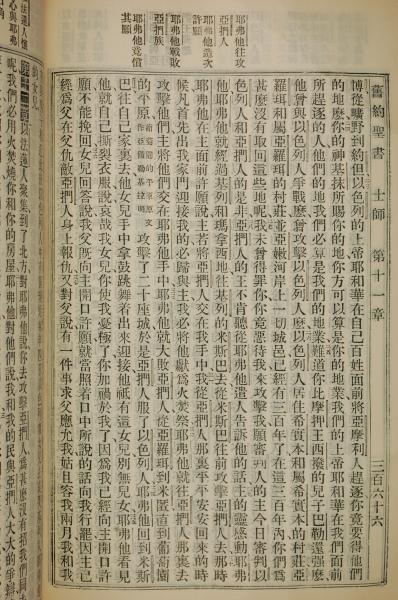 舊約聖書 士師 第十一章 三百六十六
耶弗他往攻
亞捫人
耶弗他造次
許願
耶弗他戰敗
亞捫族
耶弗他竟償
其願
博從曠野到約但以色列的上帝耶和華在自己百姓面前將亞摩利人趕逐你竟要得他們
的地麼你的神基抹所賜你的地你方可以算是你的地業我們的上帝耶和華在我們面前
所趕逐的人他們的地我們必算是我們的地業難道你比摩押王西撥的兒子巴勒還強麼
他曾與以色列人爭戰麼曾攻擊以色列人麼以色列人居住希實本和屬希實本的村莊亞
羅珥和屬亞羅珥的村莊並亞嫩河岸上一切城邑已經有三百年了在這三百年內你們爲
甚麼沒有取回這些地呢我未曾得罪你你竟惡待我來攻擊我願審判人的主今日審判以
色列人和亞捫人的是非亞捫人的王不肯聽從耶弗他遣人告訴他的話主的靈感動耶弗
他耶弗他就經過基列和瑪拿西地往基列的米斯巴去從米斯巴往前攻擊亞捫人去那時
耶弗他在主面前許願說主若將亞捫人交在我手中我從亞捫人那裏平平安安回來的時
候凡首先出我家門迎接我的必歸與主我必將他獻爲火焚祭耶弗他就往亞捫人那裏去
攻擊他們主將他們交在耶弗他手中耶弗他就大敗亞捫人從亞羅珥到米匿直到葡萄園
的平原葡萄園的平原原文作亞備勒基拉明攻擊了二十座城於是亞捫人服了以色列人耶弗他回到米斯
巴往自己家裏去他女兒手中拿鼓跳舞着出來迎接他祇有這女兒別無兒女耶弗他看見
他就自己撕裂衣服說哀哉我女兒你使我憂極了你加禍於我了因爲我已經向主開口許
願不能挽回女兒回答說我父既向主開口許願就當照着口中所說的話向我行罷因主已
經爲父在父仇敵亞捫人身上報仇又對父說有一件事求父應允我姑且容我兩月我和我
以法蓮人聚集到了北方對耶弗他說你去攻擊亞捫人爲甚麼沒有招我們同
呢我們必用火焚燒你和你的房屋耶弗他對他們說我和我的民與亞捫人大大的爭辯